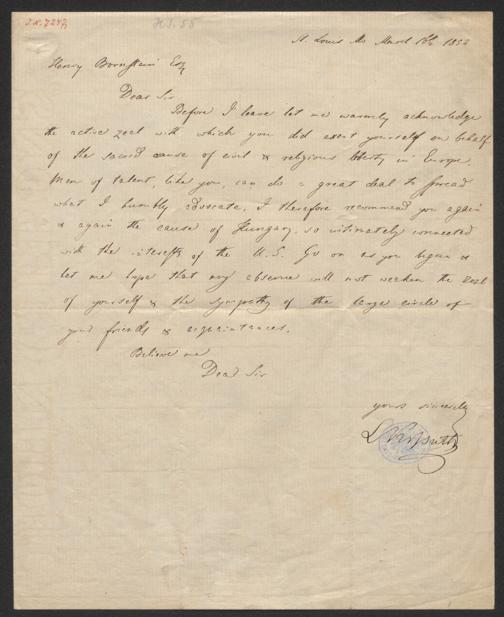 I.N. 7247
H.I. 55
St. Louis Mo March 1852
Henry Bornstein Esq
Dear Sir
Before I leave let me warmly acknowledge
the active zeal with which you did exert yourself on behalf
of the sacred cause of civil & religious liberty in Europe.
Men of talent, like you, can do a great deal to spread
what I humbly advocate. I therefore recommend you again
& again the cause of Hungary, so intimately connected
with the interests of the U.S. Go on as you begun &
let me hope that my absence will not weaken the zeal
of yourself & the sympathy of the large circle of
your friends & acquaintances.
Believe me
Dear Sir
yours sincerely
L Kossuth